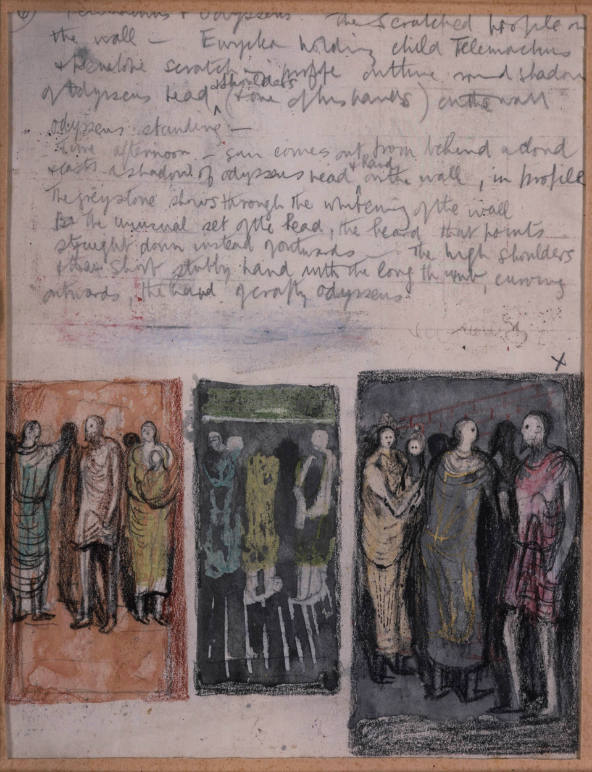 Telemachus + Odysseus. The scratched profile on
the wall — Euryclea holding child Telemachus
+ Penelope scratching profile outline round shadow
of Odysseus head, shoulders (+ one of his hands) on the wall
Odysseus standing —
Time afternoon — sun comes out from behind a cloud
+ casts a shadow of Odysseus head + hand on the wall, in profile
The grey stone shows through the whitening of the wall
The unusual set of the head, the beard that points
straight down instead of outwards — The high shoulders
+ the short stubby hand with the long thumb, curving
outwards, the hand of crafty Odysseus.
X